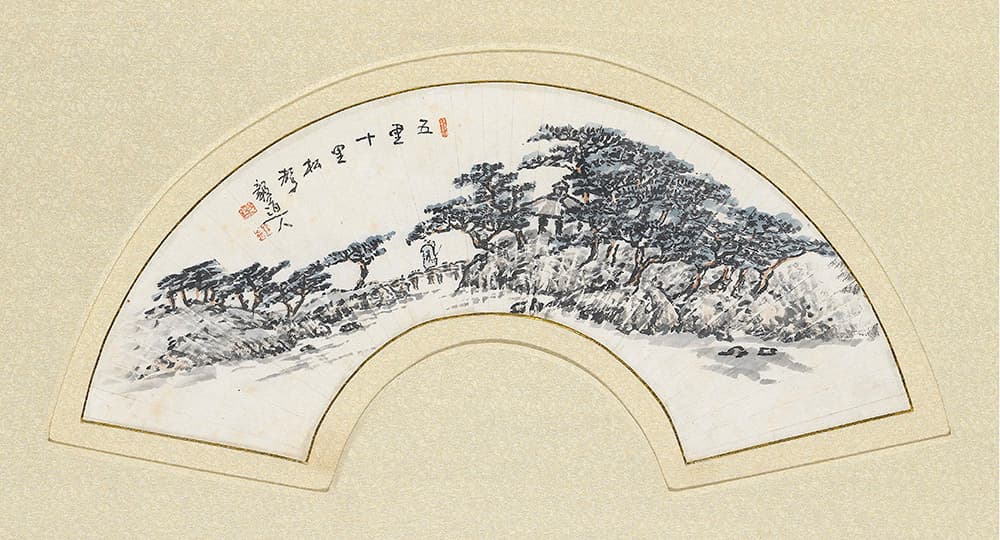 五里十里松聲
毅道人